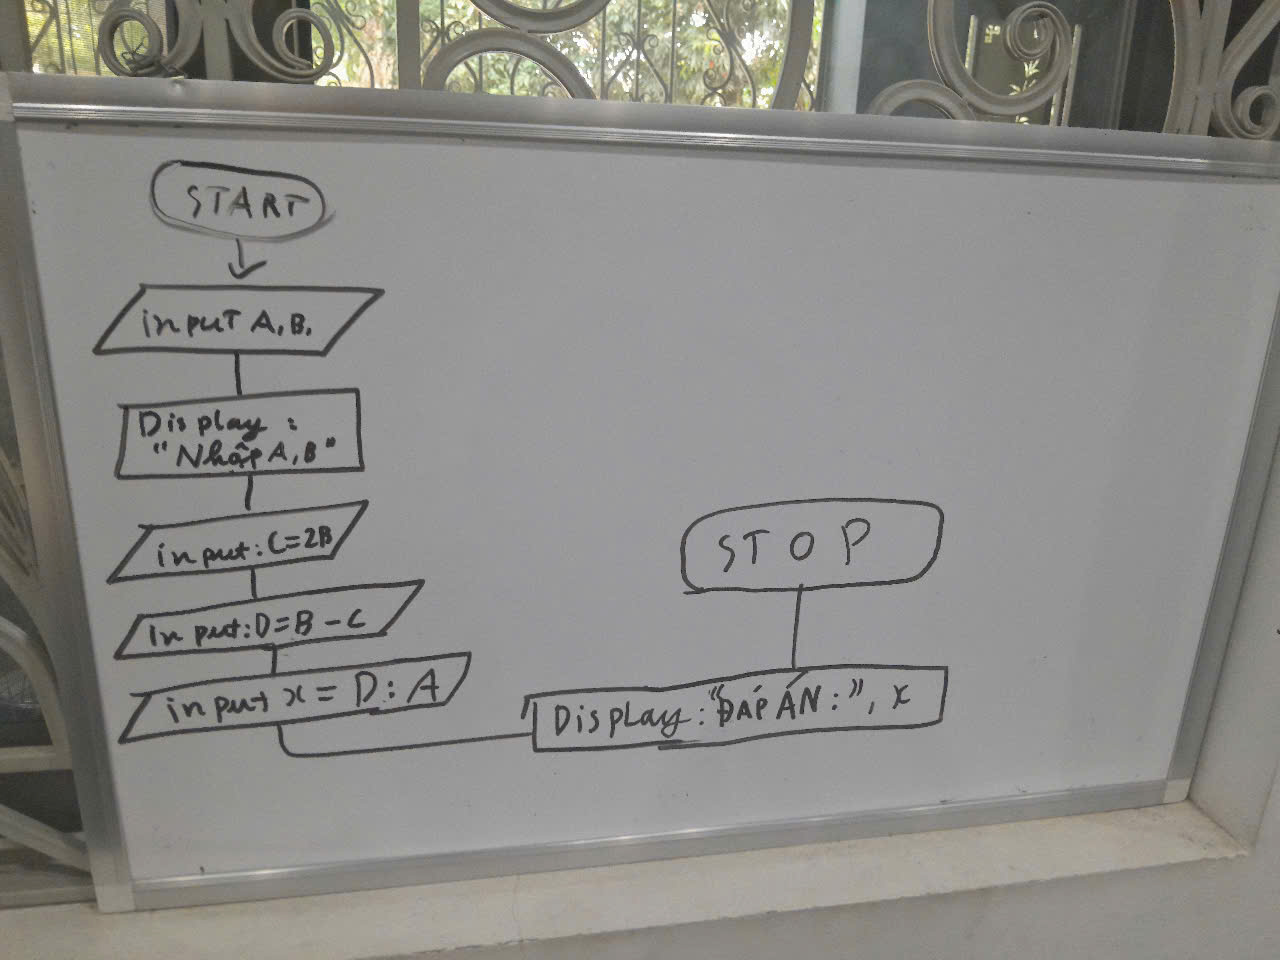 START
input A, B,
Display :
"Nhập A, B"
input: C=2B
input: D=B-C
input x = D: A
Display: "ĐÁP ÁN:", x
STOP